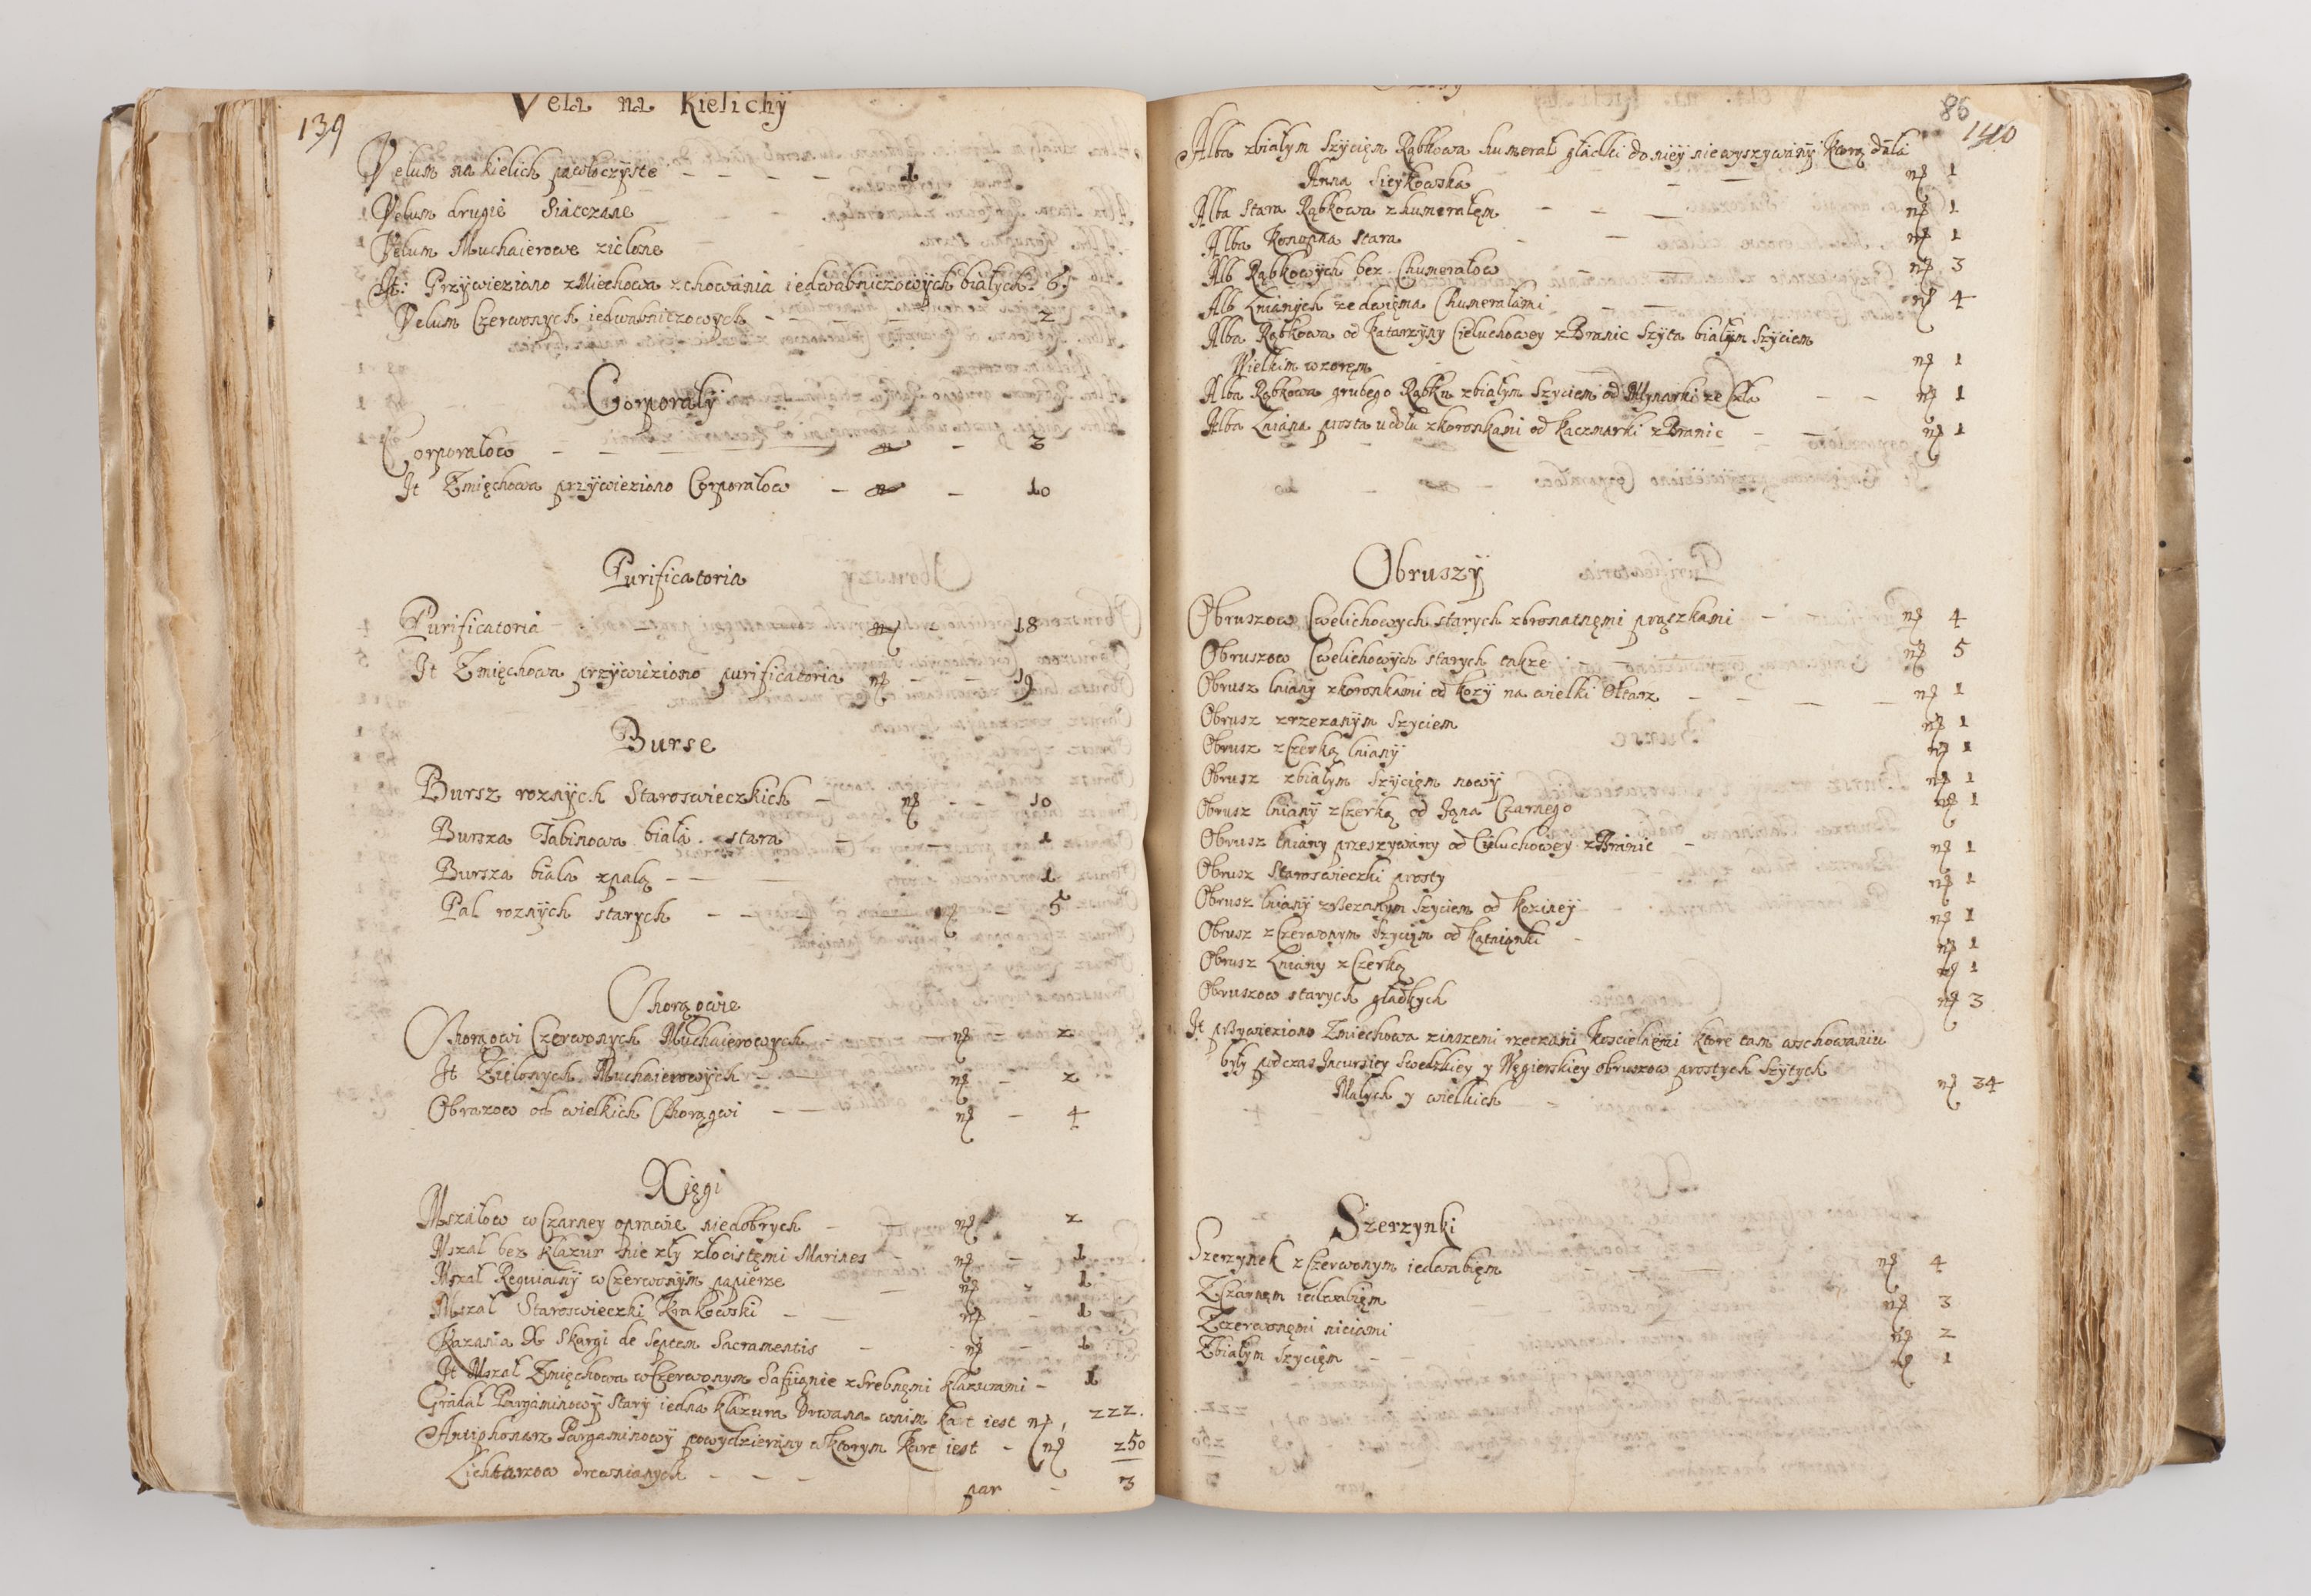 139
Vela na Kielichÿ
Velum na kielich pawłoczÿste - - - - 1
Velum drugie Siatczane
Velum Muchaierowe zielone
It: Przÿwieziono z Miechowa z chowánia iedwabniczowÿch białÿch. 6.
Velum Czerwonÿch iedwabniczowÿch - - - - 2
Corporałÿ
Corporałow - - - - 3
It Zmięchowa przÿwieziono Corporałow - nz - 10
Purificatoria
Purificatoria - - nz - 18
It Zmięchowa przÿwieziono purificatoria nz - - 19
Burse
Bursz roznÿch Staroswieczkich - nz - - 10
Bursza Tabinowa biała stara - - 1
Bursza biała z palą - - - 1
Pal roznÿch starÿch - - nz - 5
Chorągwie
Chorągwi Czerwonÿch Muchaierowÿch - nz - 2
It Zielonÿch Muchaierowÿch - - nz - 2
Obrazow od wielkich Chorągwi - - nz - 4
Xięgi
Mszałow w Czarney oprawie niedobrych - - nz 2
Mszał bez klazur nie zły złocistęmi Marines - nz - 1
Mszał Requialnÿ w Czerwonÿm papierze - nz - 1
Mszał Staroswieczki Krakowski - - nz - 1
Kazania X Skargi de Septem Sacramentis - nz - 1
It Mszał Zmięchowa w Czerwonym Safiianie z Srebnęmi klazurami - 1
Gradał Pargáminowÿ Starÿ iedna klazura Vrwana wnim kart iest nz, 222.
Antiphonarz Pargaminowÿ powydzierány w ktorym kart iest - nz 250
Lichtarzow drewnianÿch - - - par - 3
86
140
Alba z białym Szÿcięm Rąbkowa humerał gładki do nieÿ nie wyszywánÿ ktorą dała
Anna Sieÿkowska - - nz 1
Alba Stara Rąbkowa z humerałęm - - - nz 1
Alba konopna stara - - nz 1
Alb Rąbkowÿch bez Chumerałow - - nz 3
Alb Lnianÿch ze dwięma Chumerałámi - - nz 4
Alba Rąbkowa od Katarzÿnÿ Cieluchoweÿ z Branic Szÿta białÿm Szÿciem
Wielkim wzoręm nz 1
Alba Rąbkowa grubego Rąbku z białÿm Szyciem od Młynarki ze Cła - - nz 1
Alba Lniana prosta u dołu z koronkami od kaczmarki z Branic - - nz 1
Obruszÿ
Obruszow Cwelichowÿch starÿch z bronatnęmi prąszkami - - nz 4
Obruszow Cwelichowÿch starÿch także - - nz 5
Obrusz lnianÿ z koronkami od kozÿ na wielki Ołtarz - - - nz 1
Obrusz z rzezanÿm Szyciem nz 1
Obrusz z Czerką lnianÿ nz 1
Obrusz z białÿm Szÿcięm nowÿ nz 1
Obrusz lnianÿ z Czerką od Jąna Czarnego nz 1
Obrusz lnianÿ przeszywány od Cieluchoweÿ z Branic - nz 1
Obrusz Staroswieczki prosty nz 1
Obrusz lnianÿ z Rzezanym Szyciem od Kozineÿ nz 1
Obrusz z Czerwonym Szyciem od kątnianki - nz 1
Obrusz Lnianÿ z Czerką nz 1
Obruszow starÿch gładkych nz 3
It przywieziono Zmiechowa z inszemi rzeczami kościelnęmi ktore tam w schowaniu
były podczas Incursiey Swedzkiey y Węgierskiey obruszow prostych Szytych
Małych y wielkich nz 34
Szerzynki
Szerzynek z Czerwonym iedwabięm nz 4
Z Czarnęm iedwabięm nz 3
Z czerwonęmi niciami nz 2
Z białÿm Szycięm - - nz 1